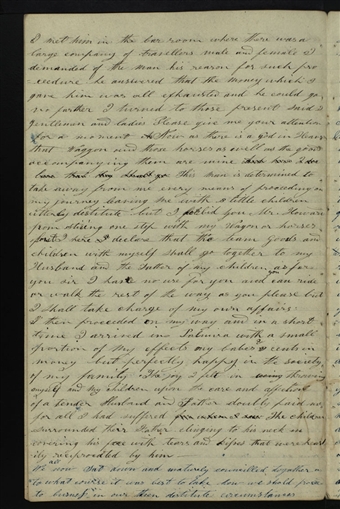 I met him in the bar room where there was a
large company of travellors male and female I
demanded of the man his reason for such pro
ceedure he answered that the money which I
gave him was all exhausted and he could go
no farther I turned to those present said
gentlemen and ladies Please give me your attention
for a moment Now as there is a god in Heaven
that waggon and those horses as well as the goods
accompanying them are mine
This man is determined to
take away from me every means of proceeding on
my journey leaving me with little children
utterly destitute but I forbid you Mr. Howard
from stiring one step with my wagon or horses
here I declare that the team goods and
children with myself shall go together to my
Husband and the Father of my children as for
you sir I have no use for you and can ride
or walk the rest of the way as you please but
I shall take charge of my own affairs
I then proceeded on my way and in a short
time I arrived in Palmira with a small
portion of my effects my babes & cents in
money but perfectly happy in the society
of my family. The joy I felt in throwing
myself and my children upon the care and affection
of a tender Husband and Father doubly paid me
for all I had suffered The children
surrounded their Father clinging to his neck
covering his face with tears and kisses that were heart
ily reciprocated by him
We all now sat down and maturely councilled together
to what course it was best to take how we should proce
to buisness in our then destitute circumstances